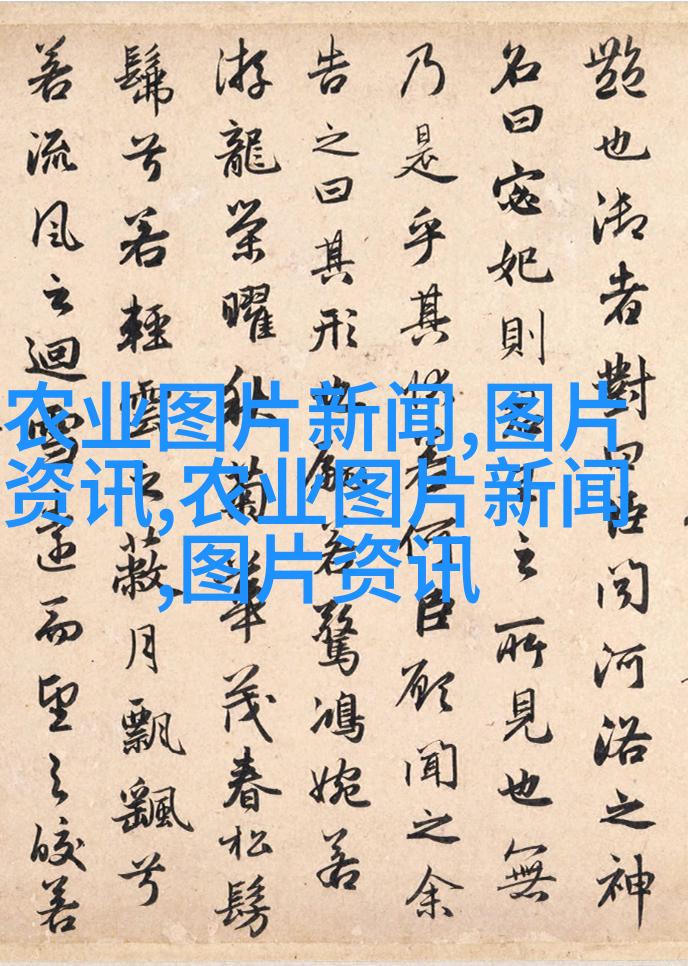 艷也御者對曰臣聞河洛之神
名曰宓妃則君王之所見也無
乃是乎其狀若何臣願聞之余
告之曰其形也翩若驚鴻婉若
游龍榮曜秋菊華茂春松髣
髴兮若輕雲之蔽月飄颻兮
若流風之迴雪遠而望之皎若
农业图片新闻,图片
资讯,农业图片新闻
,图片资讯